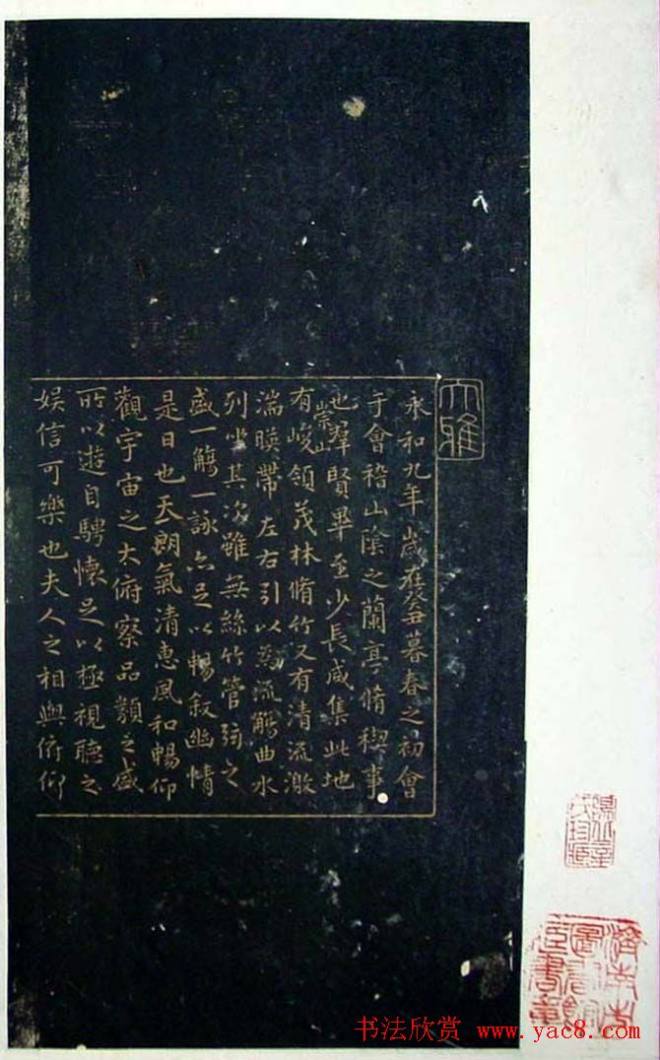 大雅
永和九年歲在癸丑暮春之初會
于會稽山陰之蘭亭脩禊事
也羣賢畢至少長咸集此地
有崇山峻領茂林脩竹又有清流激
湍暎帶左右引以爲流觴曲水
列坐其次雖無絲竹管弦之
盛一觴一詠亦足以暢敘幽情
是日也天朗氣清惠風和暢仰
觀宇宙之大俯察品類之盛
所以遊目騁懷足以極視聽之
娱信可樂也夫人之相與俯仰
濟南市圖書館藏書章
书法欣赏 www.yac8.com